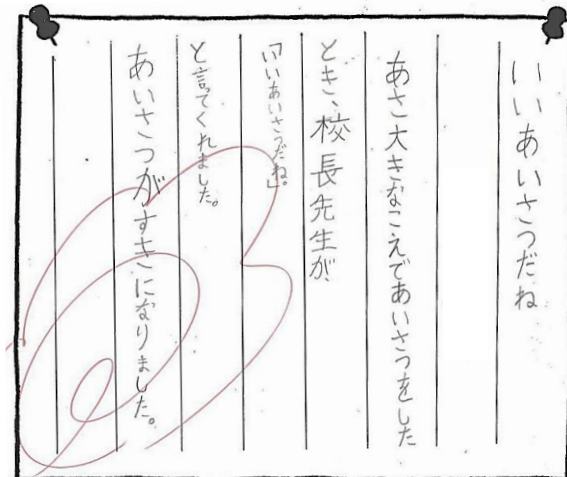 いいあいさつだね
あさ大きなこえであいさつをした
とき、校長先生が、
「いいあいさつだね。」
と言ってくれました。
あいさつがすきになりました。